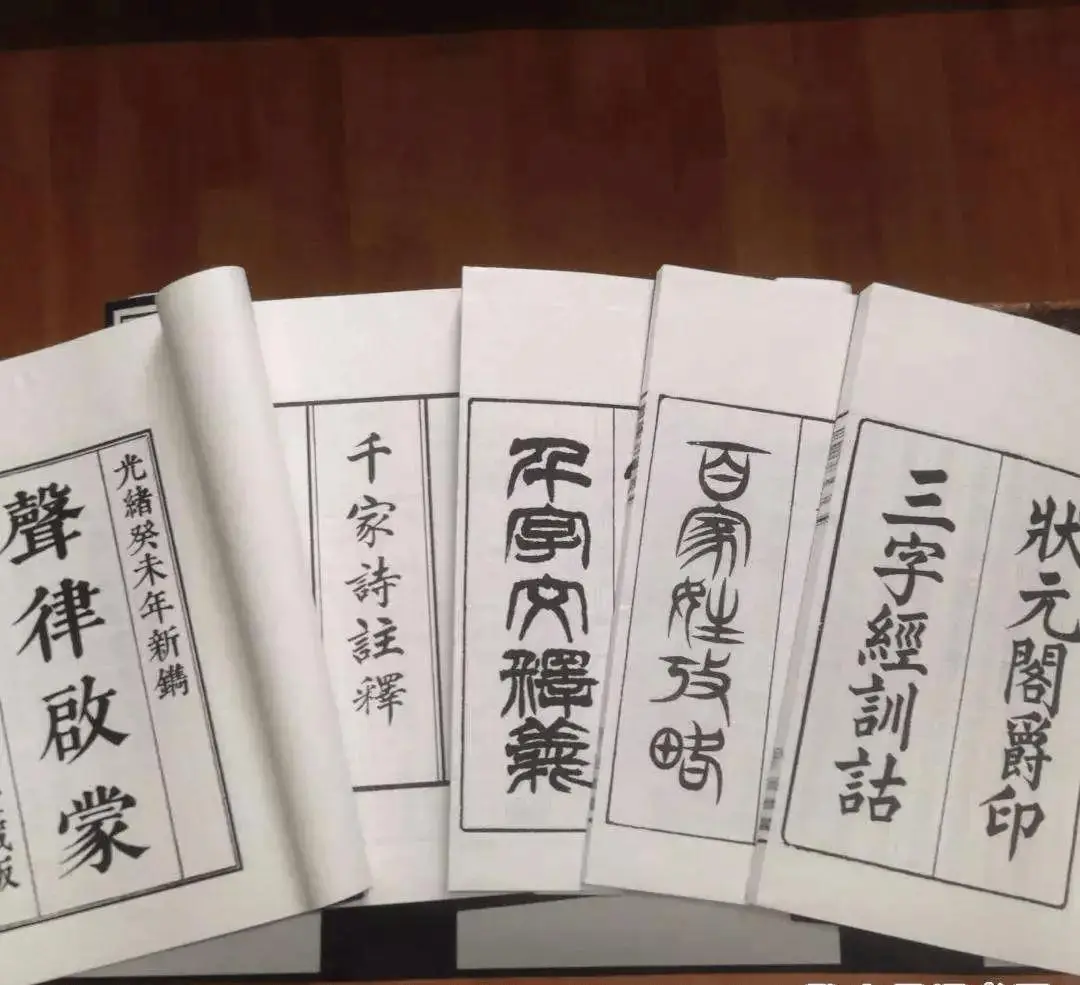 狀元閣爵印
三字經訓詁
百家姓攷略
千字文釋義
千家詩註釋
光緒癸未年新鐫
聲律啟蒙
藏版